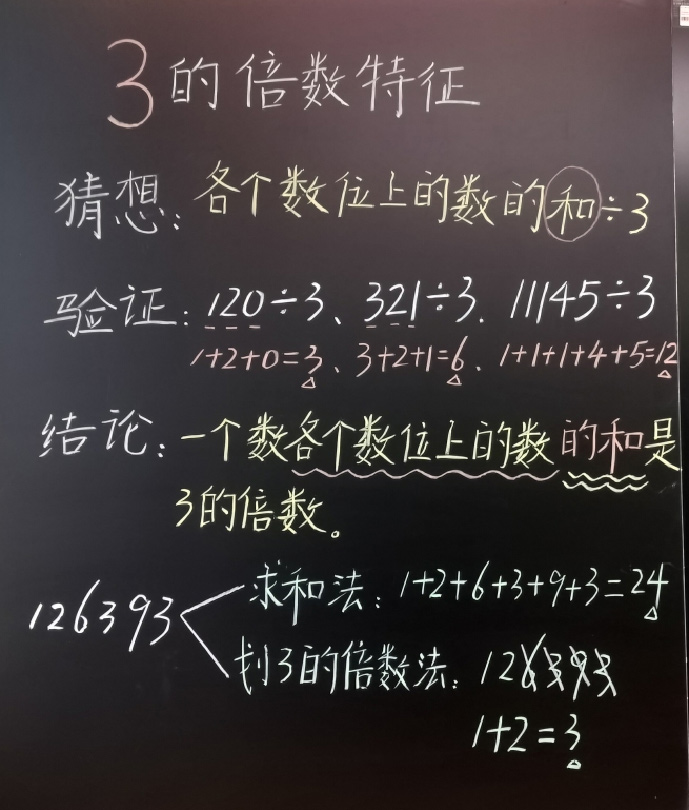 3的倍数特征
猜想：各个数位上的数的和÷3
验证：120÷3、321÷3、11145÷3
1+2+0=3、3+2+1=6、1+1+1+4+5=12
结论：一个数各个数位上的数的和是
3的倍数。
求和法：1+2+6+3+9+3=24
126393
划3的倍数法：126393
1+2=3